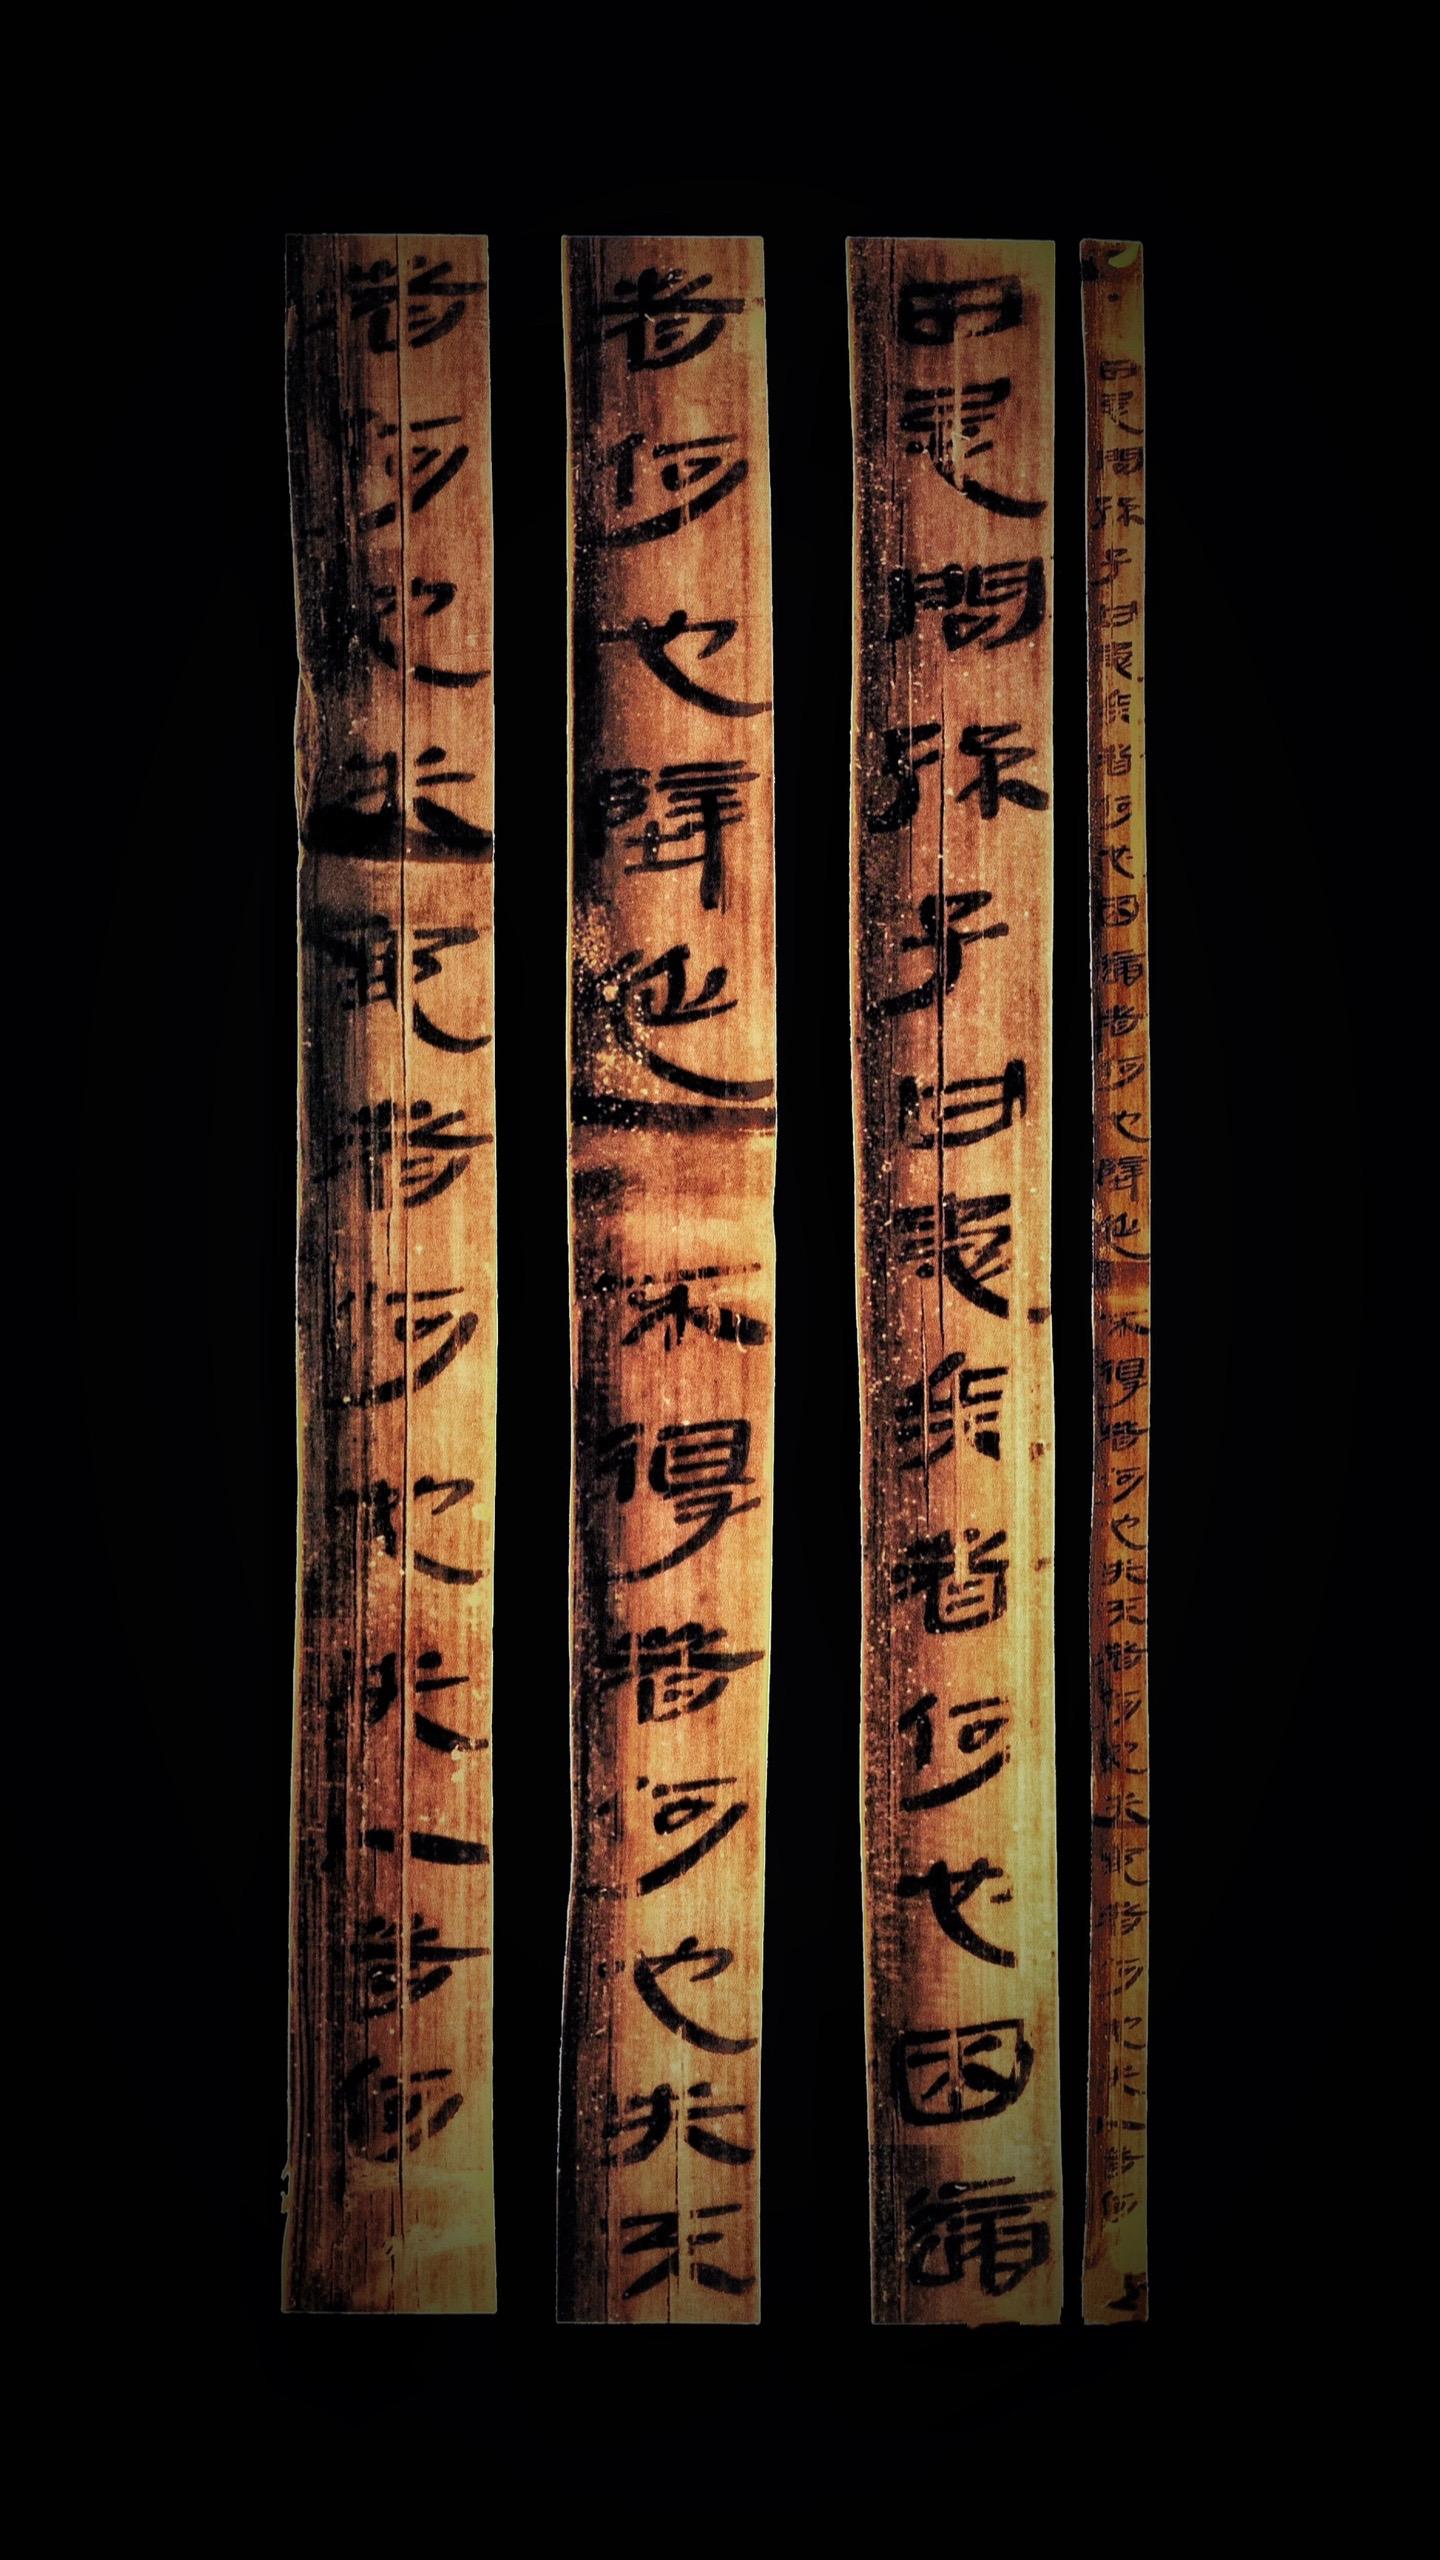 田忌問孫子曰患兵者何也困適者何也壁延不得者何也失天者何也失地者何也失人者何
田忌問孫子曰患兵者何也困適
者何也壁延不得者何也失天
者何也失地者何也失人者何